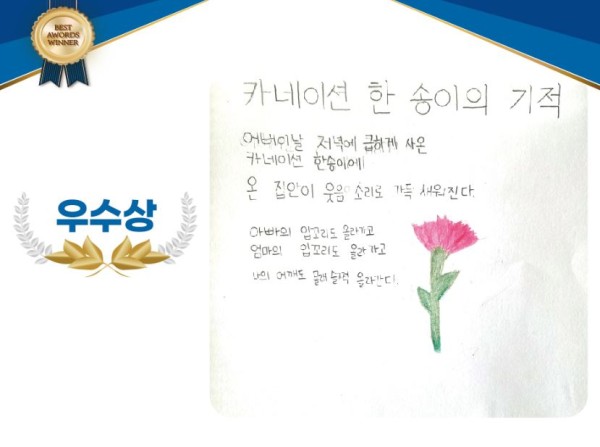 BEST
AWORDS
WINNER
카네이션 한 송이의 기적
어버이날 저녁에 급하게 사온
카네이션 한송이에
온 집안이 웃음 소리로 가득 채워진다.
우수상
아빠의 입꼬리도 올라가고
엄마의 입꼬리도 올라가고
나의 어깨도 슬적 올라간다.